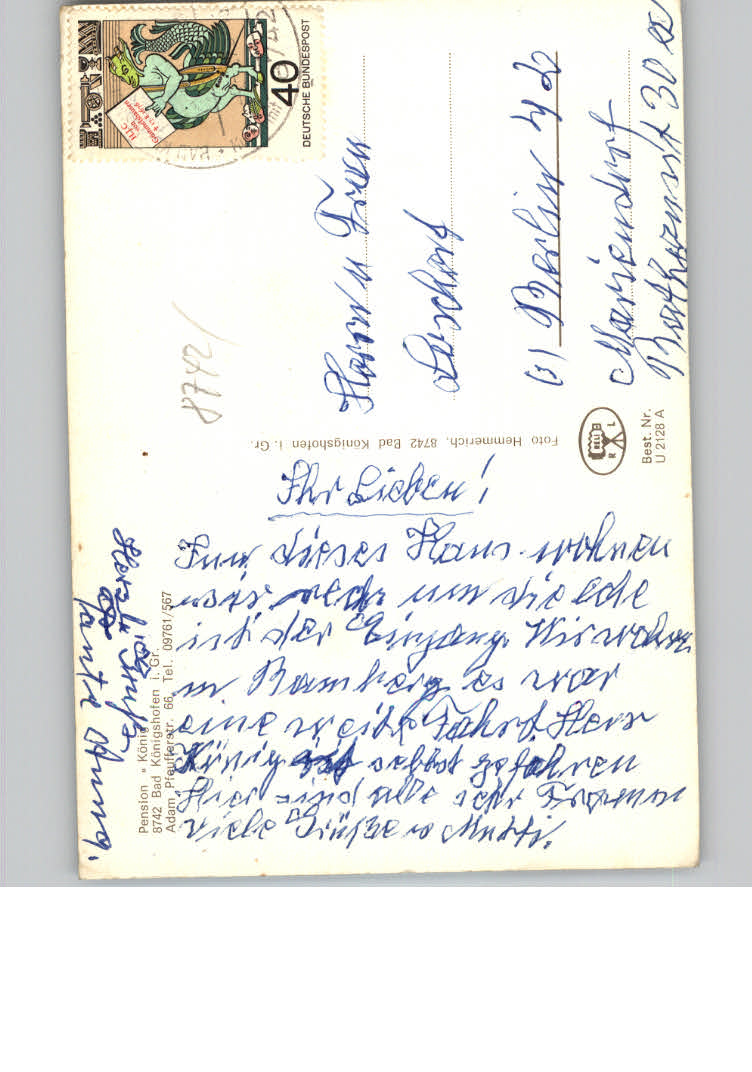 Ihr Lieben!
In dieses Haus wohnen
wir um die ecke
ist der Eingang Wir wahren
in Bamberg es war
eine weite Fahrt Herr
König ist selbst gefahren
Hier sind alle sehr
Viele Grüße Mutti.
Herzl. Grüße
Tante Anna.
Pension "König"
8742 Bad Königshofen i. Gr.
Adam-Pfeufferstr. 66, Tel. 09761/567
Foto Hemmerich, 8742 Bad Königshofen i. Gr.
BELI
R L
Best. Nr.
U 2128 A
8742/
DEUTSCHE BUNDESPOST
40
Herrn u Frau
(1) Berlin 42
Mariendorf
30 a